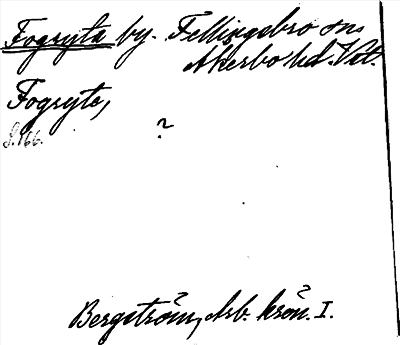 Fogryta by. Fellingsbro sn,
Åkerbo hd. Vstl.
Fogryte,
?
S. 166.
Bergström, Arb. krön. I.